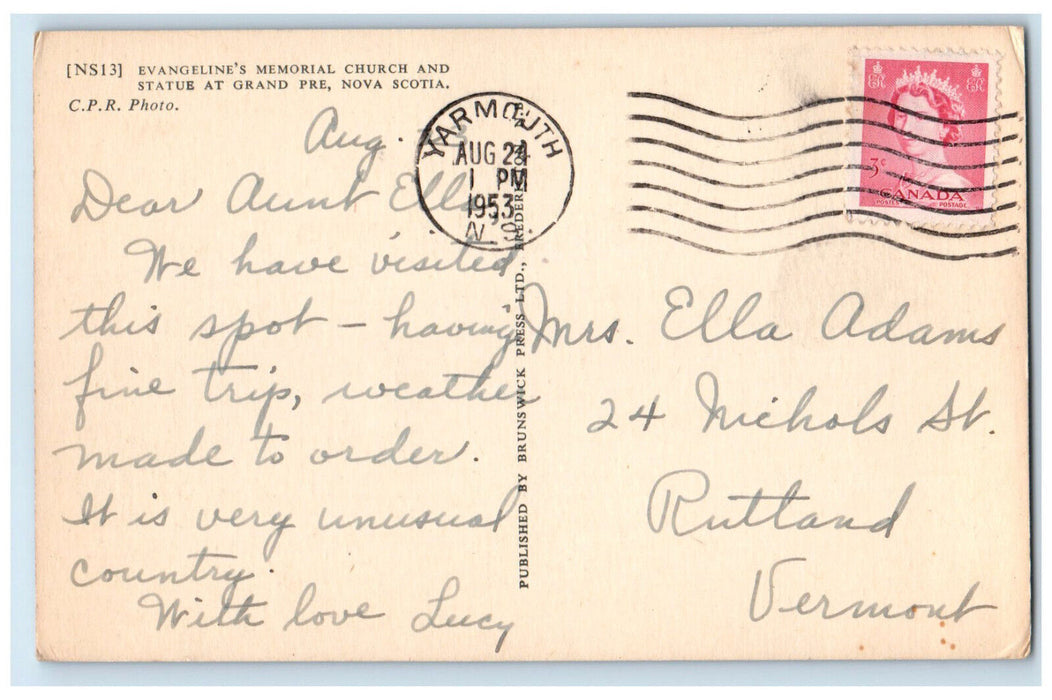 [NS13] EVANGELINE'S MEMORIAL CHURCH AND
STATUE AT GRAND PRE, NOVA SCOTIA.
C.P.R. Photo.
Aug.
Dear Aunt Ella
We have visited
this spot – having
fine trip, weather
made to order.
It is very unusual
country.
With love Lucy
PUBLISHED BY BRUNSWICK PRESS LTD.,
YARMOUTH
AUG 24
1 PM
1953
N.S.
3c
CANADA
POSTES POSTAGE
Mrs. Ella Adams
24 Nichols St.
Rutland
Vermont